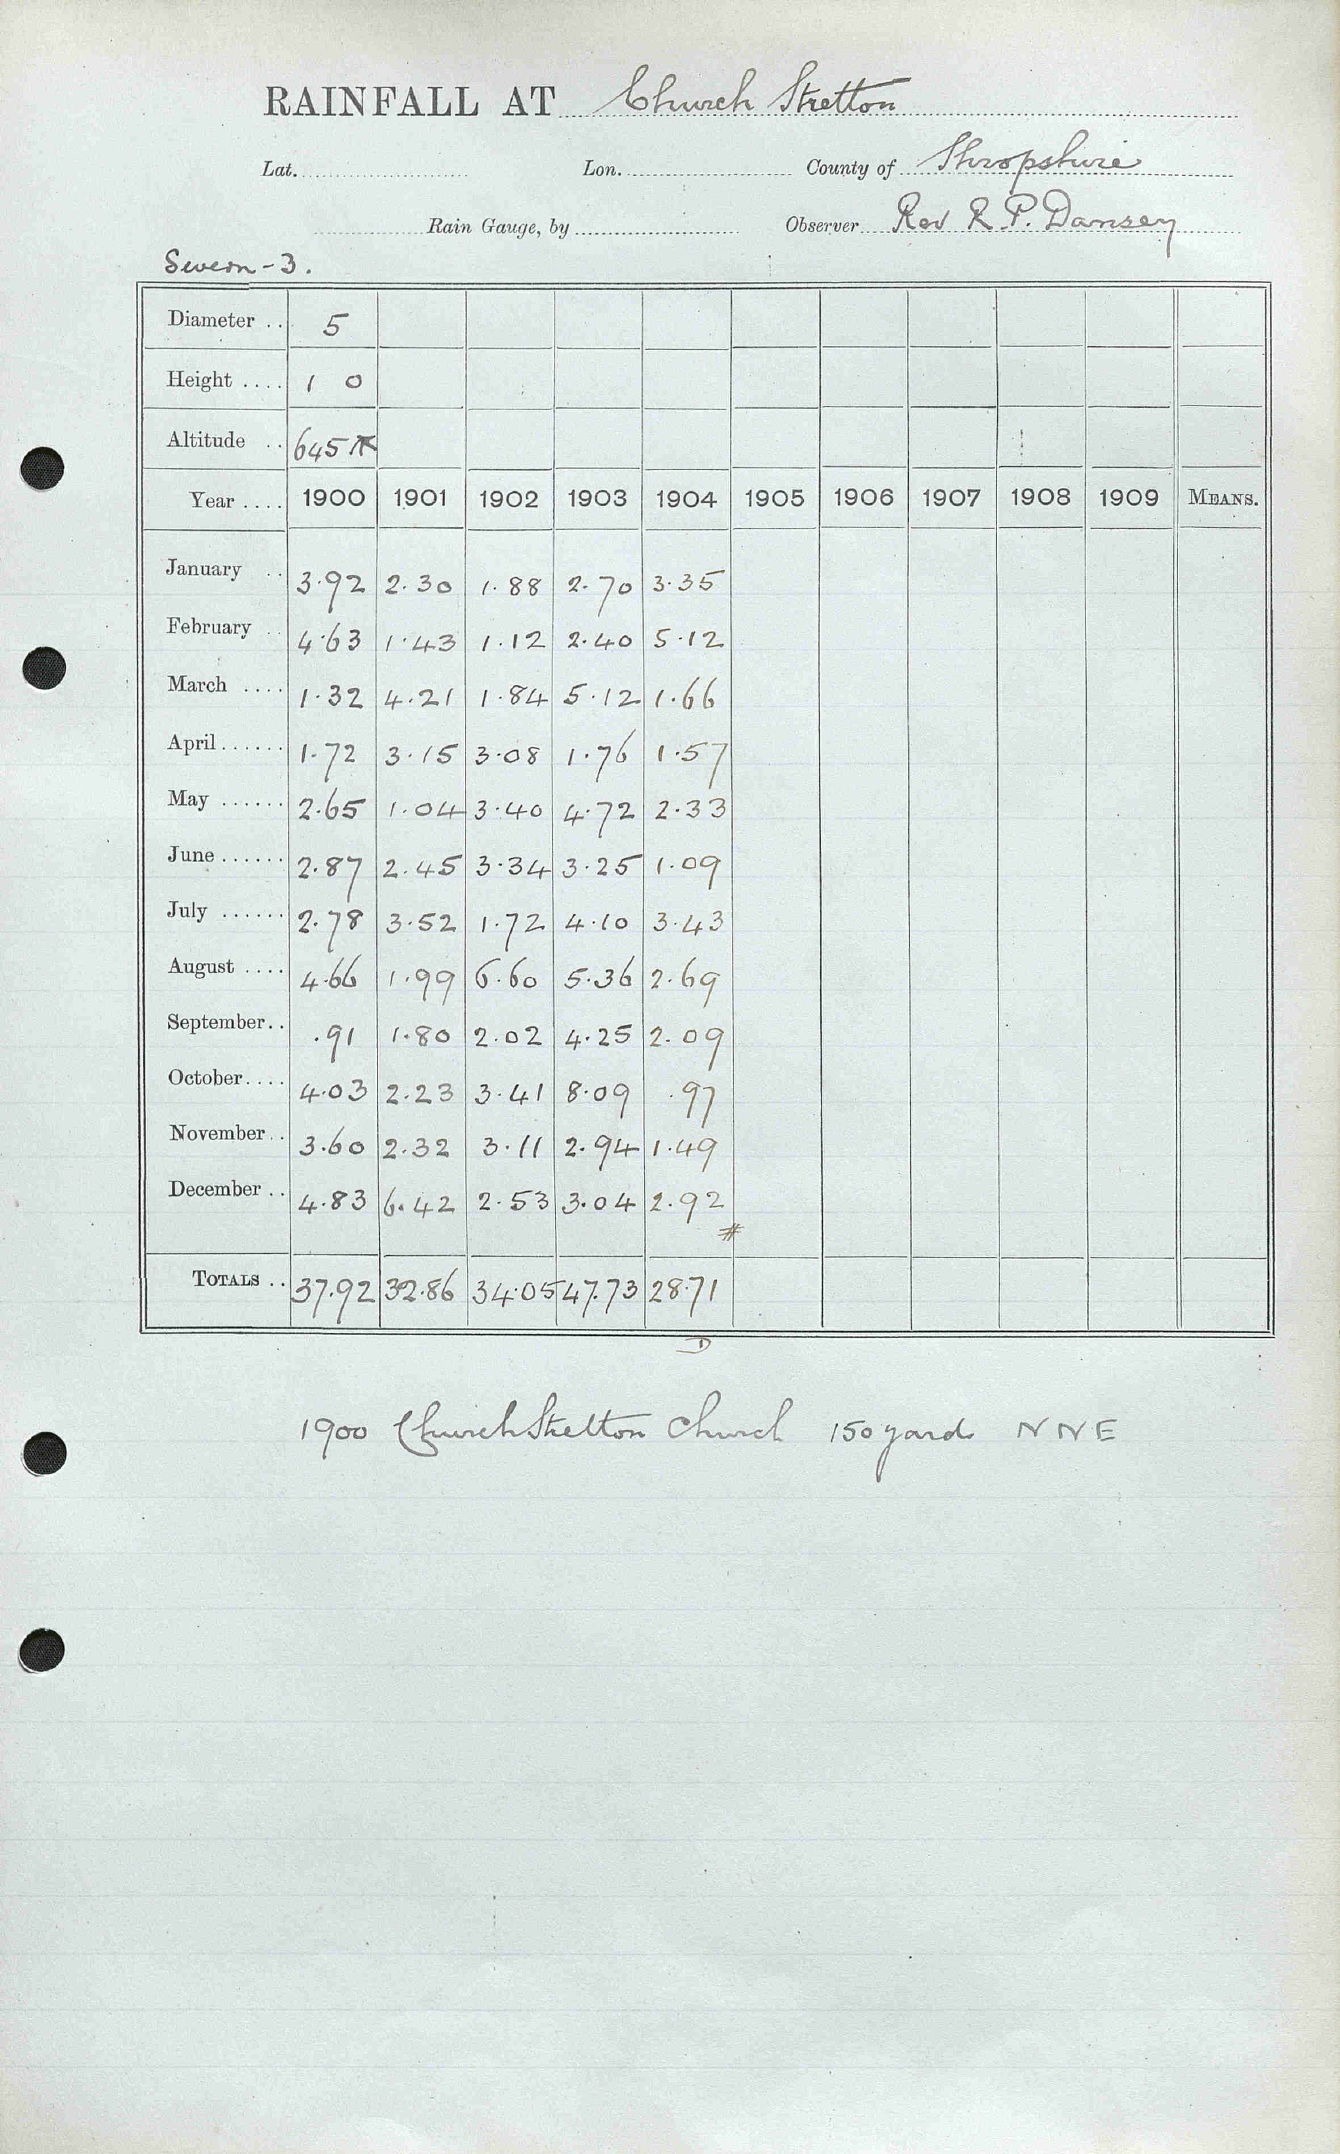 RAINFALL AT Church Stretton
Lat. Lon. County of Shropshire
Rain Gauge, by Observer Rev R. P. Dansey
Severn - 3.
Diameter .. 5
Height .... 1 0
Altitude .. 645
Year .... 1900 1901 1902 1903 1904 1905 1906 1907 1908 1909 MEANS.
January .. 3.92 2.30 1.88 2.70 3.35
February .. 4.63 1.43 1.12 2.40 5.12
March .... 1.32 4.21 1.84 5.12 1.66
April...... 1.72 3.15 3.08 1.76 1.57
May ...... 2.65 1.04 3.40 4.72 2.33
June...... 2.87 2.45 3.34 3.25 1.09
July ...... 2.78 3.52 1.72 4.10 3.43
August .... 4.66 1.99 6.60 5.36 2.69
September.. .91 1.80 2.02 4.25 2.09
October.... 4.03 2.23 3.41 8.09 .97
November.. 3.60 2.32 3.11 2.94 1.49
December .. 4.83 6.42 2.53 3.04 2.92
#
TOTALS .. 37.92 32.86 34.05 47.73 28.71
D
1900 Church Stretton Church 150 yards N N E